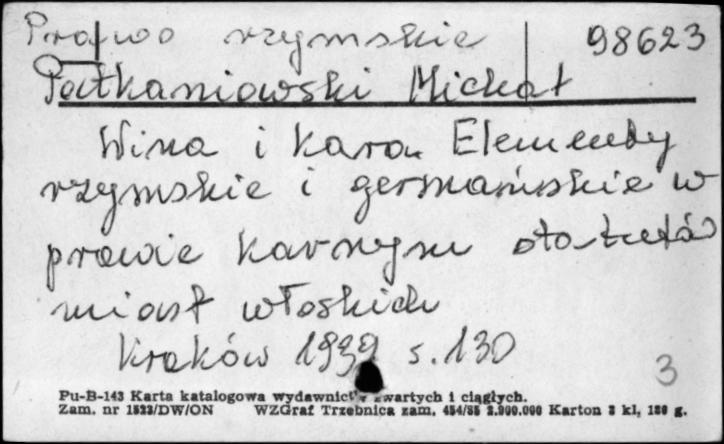 Prawo rzymskie 98623
Patkaniowski Michał
Wina i kara. Elementy
rzymskie i germańskie w
prawie karnym statutów
miast włoskich
Kraków 1939 s. 130
3
Pu-B-143 Karta katalogowa wydawnictw zwartych i ciągłych.
Zam. nr 1523/DW/ON WZGraf Trzebnica zam. 454/85 2.900.000 Karton 3 kl, 180 g.